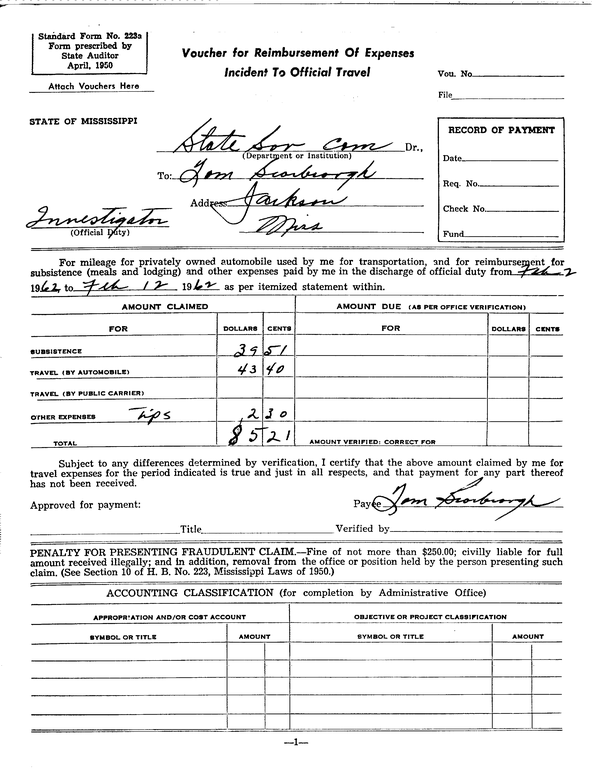 Standard Form No. 223a
Form prescribed by
State Auditor
April, 1950
Attach Vouchers Here
Voucher for Reimbursement Of Expenses
Incident To Official Travel
Vou. No.
File
STATE OF MISSISSIPPI
RECORD OF PAYMENT
Date
Req. No.
Check No.
Fund
State Sov Com Dr.,
(Department or Institution)
To: Tom Scarbrough
Address Jackson
Miss
Investigator
(Official Duty)
For mileage for privately owned automobile used by me for transportation, and for reimbursement for
subsistence (meals and lodging) and other expenses paid by me in the discharge of official duty from Feb 2
1962, to Feb 12 1962 as per itemized statement within.
AMOUNT CLAIMED
AMOUNT DUE (AS PER OFFICE VERIFICATION)
FOR DOLLARS CENTS FOR DOLLARS CENTS
SUBSISTENCE 39 51
TRAVEL (BY AUTOMOBILE) 43 40
TRAVEL (BY PUBLIC CARRIER)
OTHER EXPENSES Tips 2 30
TOTAL 85 21 AMOUNT VERIFIED: CORRECT FOR
Subject to any differences determined by verification, I certify that the above amount claimed by me for
travel expenses for the period indicated is true and just in all respects, and that payment for any part thereof
has not been received.
Approved for payment: Payee Tom Scarbrough
Title Verified by
PENALTY FOR PRESENTING FRAUDULENT CLAIM.—Fine of not more than $250.00; civilly liable for full
amount received illegally; and in addition, removal from the office or position held by the person presenting such
claim. (See Section 10 of H. B. No. 223, Mississippi Laws of 1950.)
ACCOUNTING CLASSIFICATION (for completion by Administrative Office)
APPROPRIATION AND/OR COST ACCOUNT OBJECTIVE OR PROJECT CLASSIFICATION
SYMBOL OR TITLE AMOUNT SYMBOL OR TITLE AMOUNT
—1—